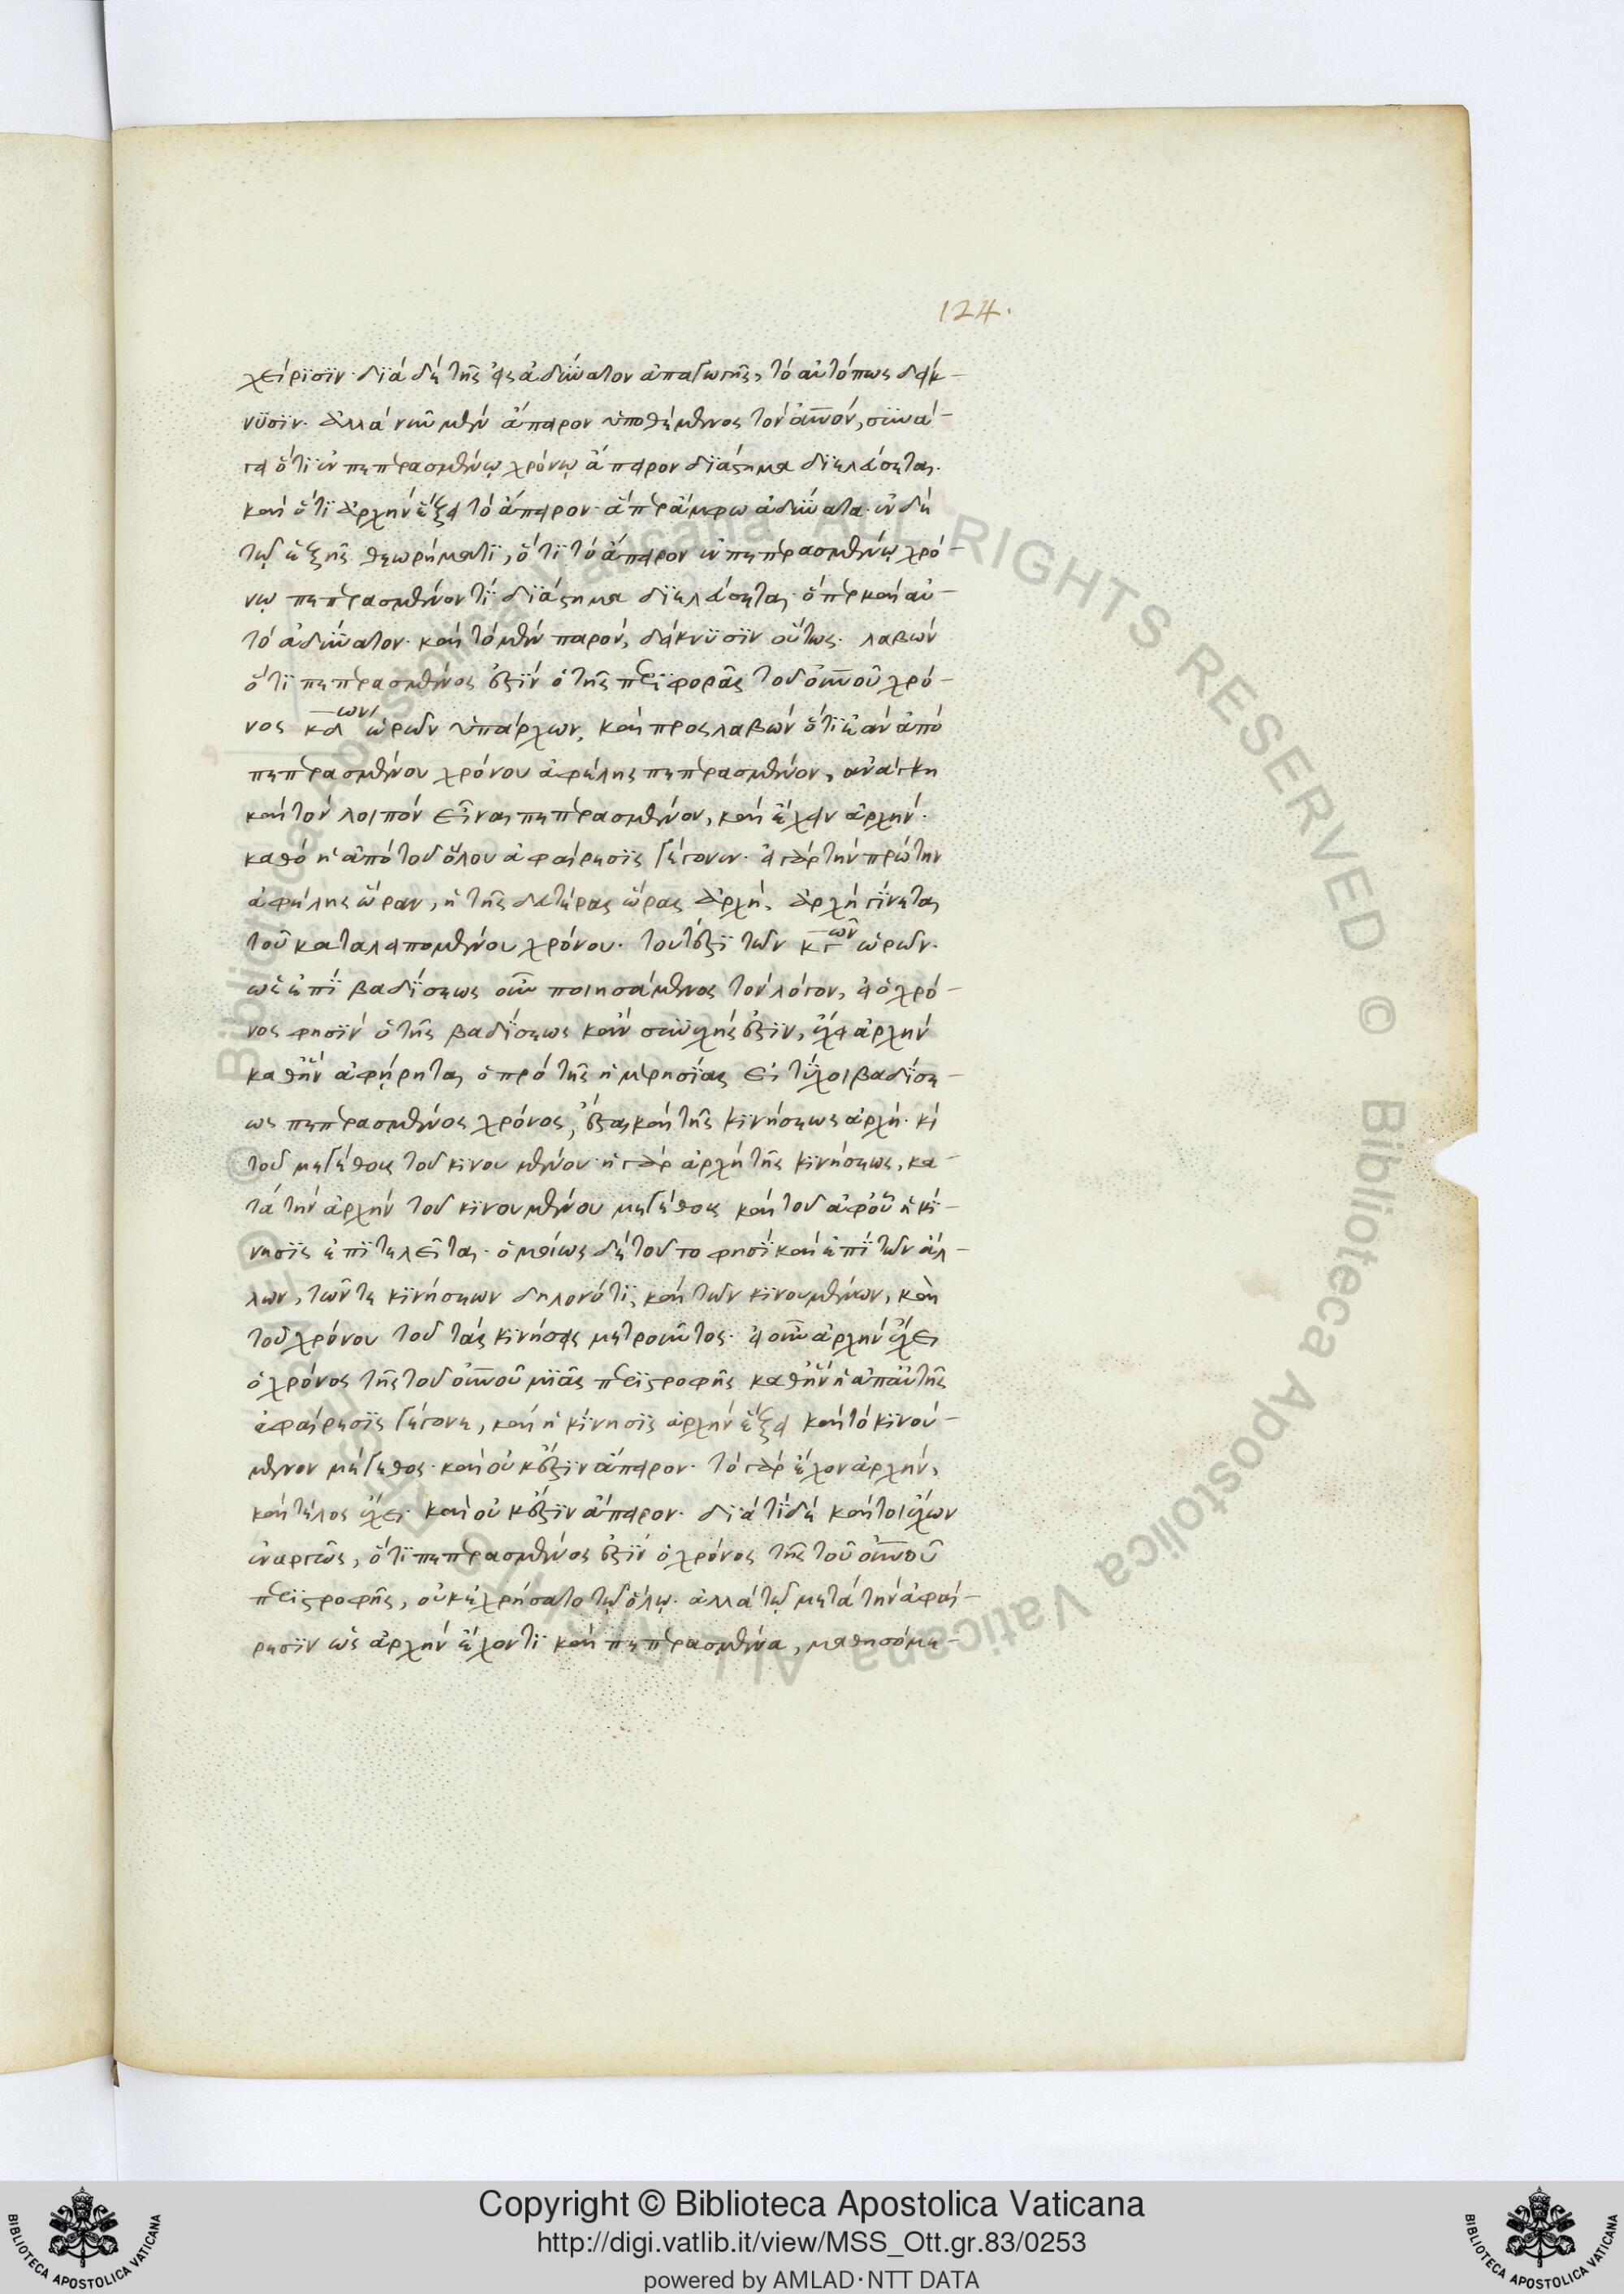 124.
χείρισιν· διὰ δὲ τῆς εἰς ἀδύνατον ἀπαγωγῆς, τὸ αὐτό πως δείκ-
νυσιν. ἀλλὰ νῦν μὲν ἄπειρον ὑποθέμενος τὸν οὐνον, συνά-
γει ὅτι ἐν πεπερασμένῳ χρόνῳ ἄπειρον διάστημα διελεύσεται.
καὶ ὅτι ἀρχὴν ἕξει τὸ ἄπειρον· ἅπερ ἄμφω ἀδύνατα· ἐν δὲ
τῷ ἑξῆς θεωρήματι, ὅτι τὸ ἄπειρον ἐν πεπερασμένῳ χρό-
νῳ πεπερασμένον τι διάστημα διελεύσεται· ὅπερ καὶ αὐ-
τὸ ἀδύνατον· καὶ τὸ μὲν παρὸν, δείκνυσιν οὕτως. λαβὼν
ὅτι πεπερασμένος ἐστὶν ὁ τῆς περιφορᾶς τοῦ οὐνοῦ χρό-
νος κδ ων ὡρῶν ὑπάρχων, καὶ προσλαβὼν ὅτι ἐὰν ἀπὸ
πεπερασμένου χρόνου ἀφέλης πεπερασμένον, ἀνάγκη
καὶ τὸν λοιπὸν εἶναι πεπερασμένον, καὶ ἔχειν ἀρχήν.
καθὸ ἡ ἀπὸ τοῦ ὅλου ἀφαίρεσις γέγονεν. εἰ γὰρ τὴν πρώτην
ἀφέλης ὥραν, ἡ τῆς δευτέρας ὥρας ἀρχὴ, ἀρχὴ γίνεται
τοῦ καταλειπομένου χρόνου· τουτέστι τῶν κγ ῶν ὡρῶν.
ὡς ἐπὶ βαδίσεως οὖν ποιησάμενος τὸν λόγον, εἰ ὁ χρό-
νος φησὶν ὁ τῆς βαδίσεως κἂν συνεχής ἐστιν, ἔχει ἀρχὴν
καθ' ἣν ἀφῄρηται ὁ πρὸ τῆς ἡμερησίας εἰ τύχοι βαδίσε-
ως πεπερασμένος χρόνος, ἔσται καὶ τῆς κινήσεως ἀρχή. κὶ
τοῦ μεγέθους τοῦ κινουμένου· ἡ γὰρ ἀρχὴ τῆς κινήσεως, κα-
τὰ τὴν ἀρχὴν τοῦ κινουμένου μεγέθους καὶ τοῦ ἀφ' οὗ ἡ κί-
νησις ἐπιτελεῖται. ὁμοίως δὲ τοῦτο φησὶ καὶ ἐπὶ τῶν ἄλ-
λων, τῶν τε κινήσεων δηλονότι, καὶ τῶν κινουμένων, καὶ
τοῦ χρόνου τοῦ τὰς κινήσεις μετροῦντος. εἰ οὖν ἀρχὴν ἔχει
ὁ χρόνος τῆς τοῦ οὐνοῦ μιᾶς περιστροφῆς καθ' ἣν ἡ ἀπ' αὐτῆς
ἀφαίρεσις γέγονε, καὶ ἡ κίνησις ἀρχὴν ἕξει καὶ τὸ κινού-
μενον μέγεθος· καὶ οὐκ ἔστιν ἄπειρον. τὸ γὰρ ἔχον ἀρχὴν,
καὶ τέλος ἔχει· καὶ οὐκ ἔστιν ἄπειρον. διὰ τί δὲ καίτοι ἔχων
ἐναργῶς, ὅτι πεπερασμένος ἐστὶν ὁ χρόνος τῆς τοῦ οὐνοῦ
περιστροφῆς, οὐκ ἐχρήσατο τῷ ὅλῳ· ἀλλὰ τῷ μετὰ τὴν ἀφαί-
ρεσιν ὡς ἀρχὴν ἔχοντι καὶ πεπερασμένα, μαθησόμε-
© Biblioteca Apostolica Vaticana ALL RIGHTS RESERVED © Biblioteca Apostolica Vaticana ALL RIGHTS RESERVED
Copyright © Biblioteca Apostolica Vaticana
http://digi.vatlib.it/view/MSS_Ott.gr.83/0253
powered by AMLAD·NTT DATA
BIBLIOTECA APOSTOLICA VATICANA
BIBLIOTECA APOSTOLICA VATICANA